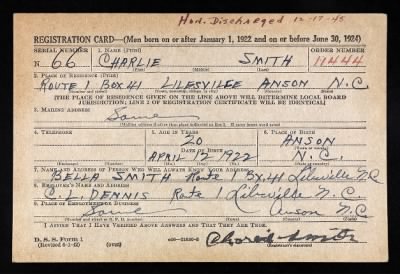 Hon. Discharged 12-17-45
REGISTRATION CARD—(Men born on or after January 1, 1922 and on or before June 30, 1924)
SERIAL NUMBER 1. NAME (Print) ORDER NUMBER
N 66 CHARLIE SMITH 11444
(First) (Middle) (Last)
2. PLACE OF RESIDENCE (Print)
ROUTE 1 BOX 41 LILESVILEE ANSON N.C.
(THE PLACE OF RESIDENCE GIVEN ON THE LINE ABOVE WILL DETERMINE LOCAL BOARD
JURISDICTION; LINE 2 OF REGISTRATION CERTIFICATE WILL BE IDENTICAL)
3. MAILING ADDRESS
Same
(Mailing address if other than place indicated on line 2. If same insert word same)
4. TELEPHONE 5. AGE IN YEARS 6. PLACE OF BIRTH
20 ANSON
DATE OF BIRTH
APRIL 12 1922 N.C.
(Exchange) (Number) (Mo.) (Day) (Yr.) (State or country)
7. NAME AND ADDRESS OF PERSON WHO WILL ALWAYS KNOW YOUR ADDRESS
BELLA SMITH Route 1 Box 41 Lilesville N.C.
8. EMPLOYER'S NAME AND ADDRESS
C. L. DENNIS Route 1 Lilesville N.C.
9. PLACE OF EMPLOYMENT OR BUSINESS
Same Anson N.C.
I AFFIRM THAT I HAVE VERIFIED ABOVE ANSWERS AND THAT THEY ARE TRUE.
D. S. S. Form 1
(Revised 6-9-42) (over)